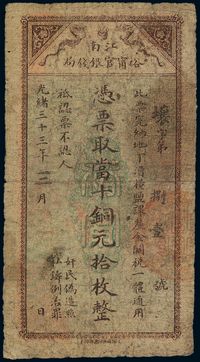 江南
裕甯官銀錢局
壞字第捌壹號
此票完納地丁漕糧鹽課釐金關稅一體通用
憑票取當十銅元拾枚整
祗認票不認人
光緒三十三年 月 日
奸民偽造照
例治罪